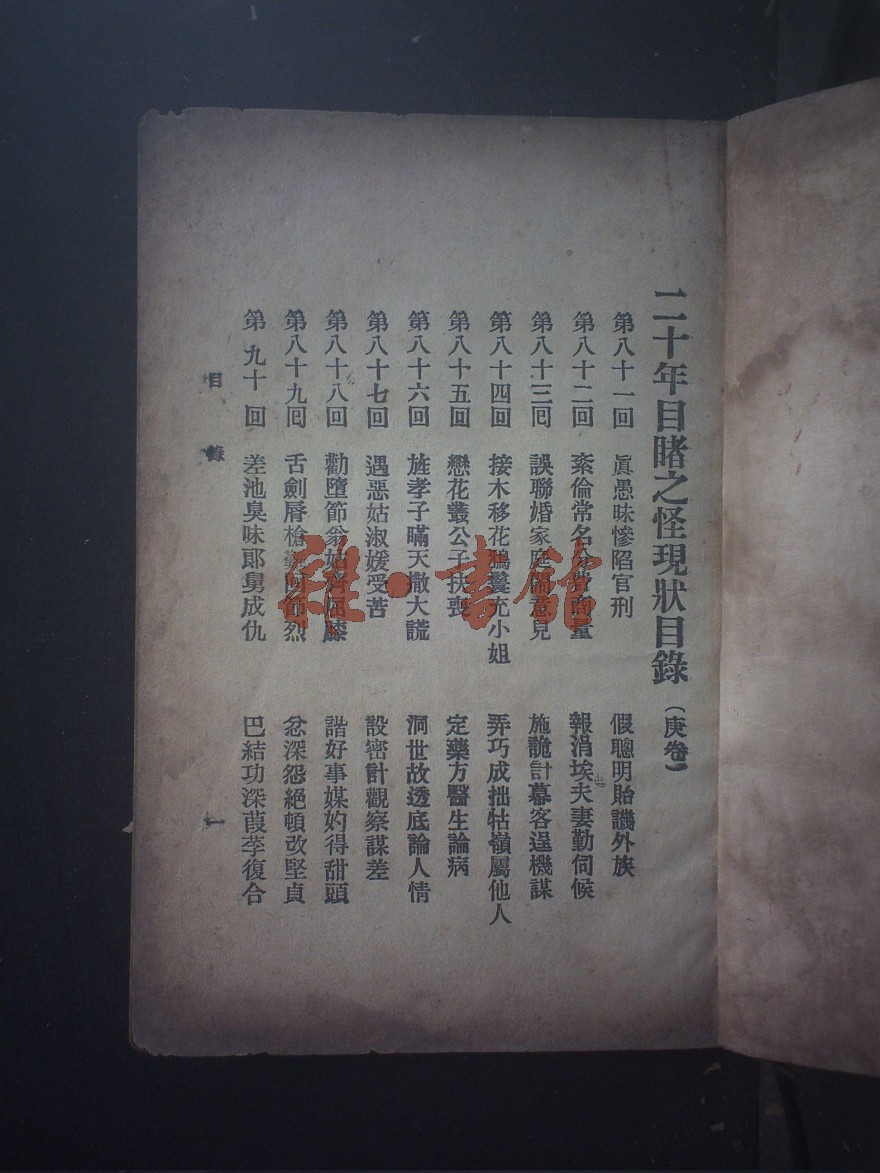 二十年目睹之怪現狀目錄（庚卷）
第八十一回　眞愚昧慘陷官刑　假聰明貽譏外族
第八十二回　紊倫常名分費商量　報涓埃夫妻勤伺候
第八十三回　誤聯婚家庭鬧意見　施詭計幕客逞機謀
第八十四回　接木移花鴉鬟充小姐　弄巧成拙牯嶺屬他人
第八十五回　戀花叢公子扶喪　定藥方醫生論病
第八十六回　旌孝子瞞天撒大謊　洞世故透底論人情
第八十七回　遇惡姑淑媛受苦　設密計觀察謀差
第八十八回　勸墮節翁姑齊屈膝　諧好事媒妁得甜頭
第八十九回　舌劍脣槍難回節烈　忿深怨絕頓改堅貞
第九十回　差池臭味郞舅成仇　巴結功深葭莩復合
目錄　一
雜·書館